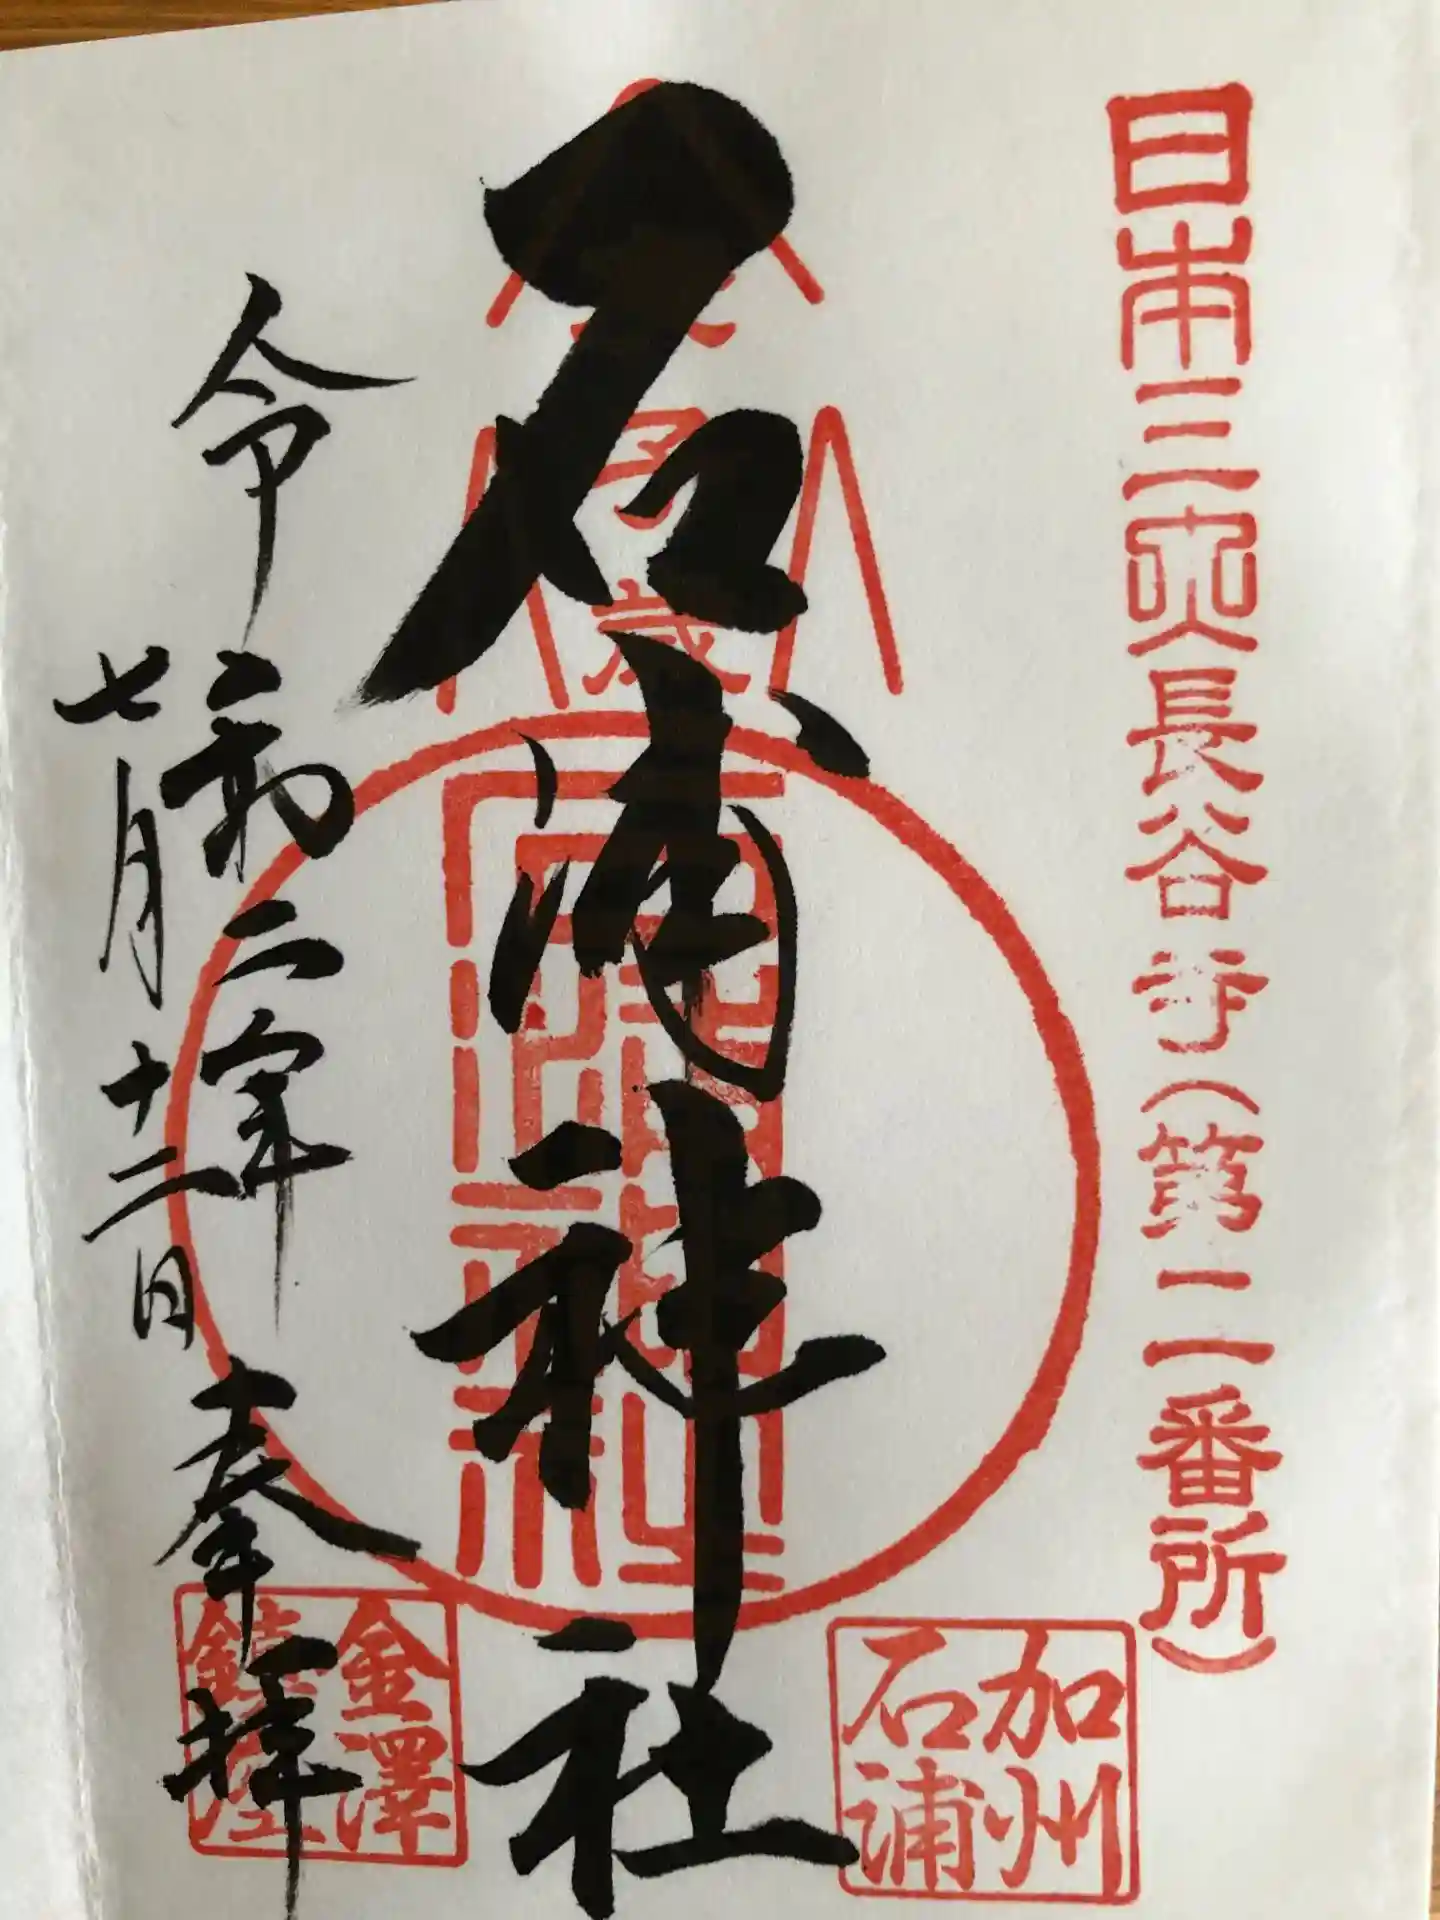 日本三大長谷寺(第二番所)
加州
石浦
石浦神社
子歳
令和二年
七月十二日
奉拝
金澤